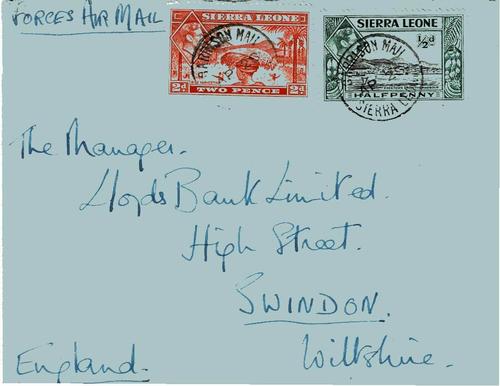 FORCES AIR MAIL
SIERRA LEONE
2d TWO PENCE 2d
SIERRA LEONE
½d
HALFPENNY
GARRISON MAIL
AP
GARRISON MAIL
AP
SIERRA
The Manager.
Lloyds Bank Limited.
High Street.
SWINDON.
Wiltshire.
England.